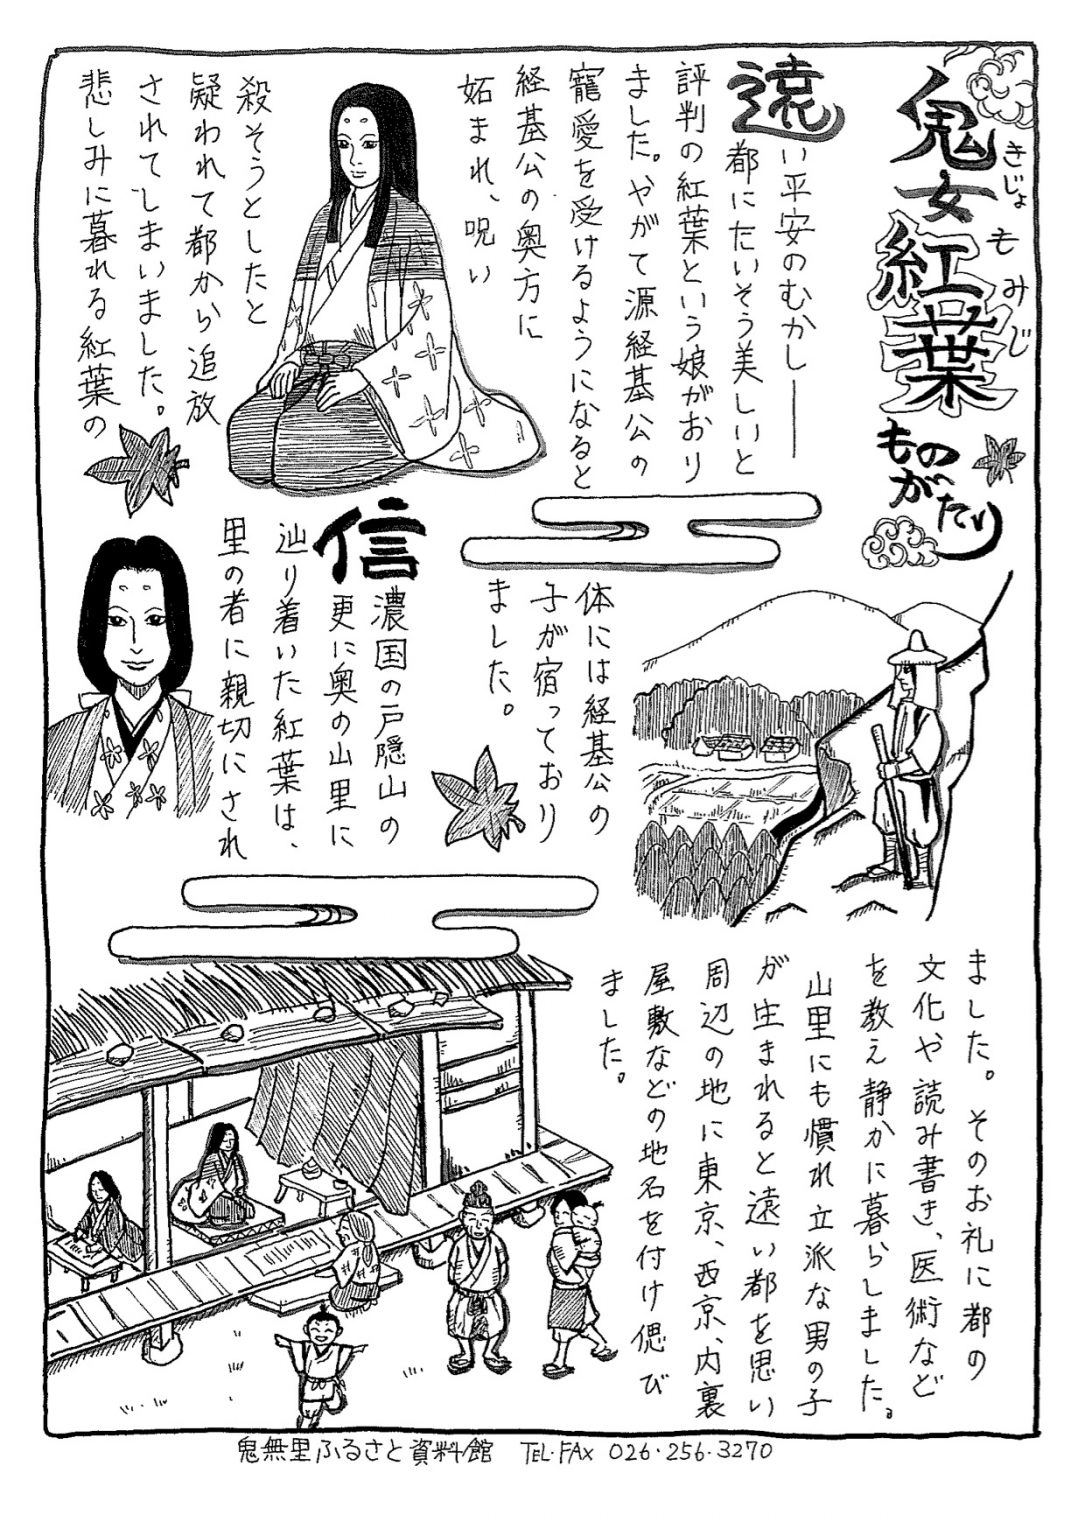 鬼女紅葉ものがたり
きじょもみじ
遠い平安のむかし――
都にたいそう美しいと
評判の紅葉という娘がおり
ました。やがて源経基公の
寵愛を受けるようになると
経基公の奥方に
妬まれ、呪い
殺そうとしたと
疑われて都から追放
されてしまいました。
悲しみに暮れる紅葉の
体には経基公の
子が宿っており
ました。
信濃国の戸隠山の
更に奥の山里に
辿り着いた紅葉は、
里の者に親切にされ
ました。そのお礼に都の
文化や読み書き、医術など
を教え静かに暮らしました。
山里にも慣れ立派な男の子
が生まれると遠い都を思い
周辺の地に東京、西京、内裏
屋敷などの地名を付け偲び
ました。
鬼無里ふるさと資料館 TEL・FAX 026・256・3270